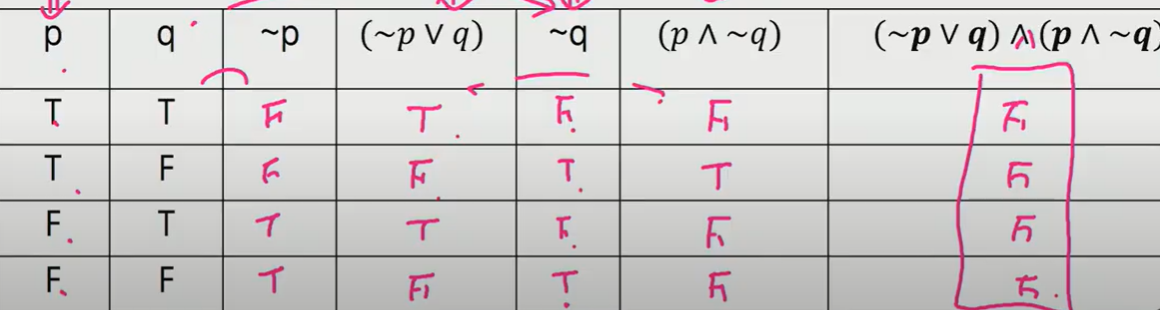 p q ~p (~p ∨ q) ~q (p ∧ ~q) (~p ∨ q) ∧ (p ∧ ~q)
T T F T F F F
T F F F T T F
F T T T F F F
F F T F T F F